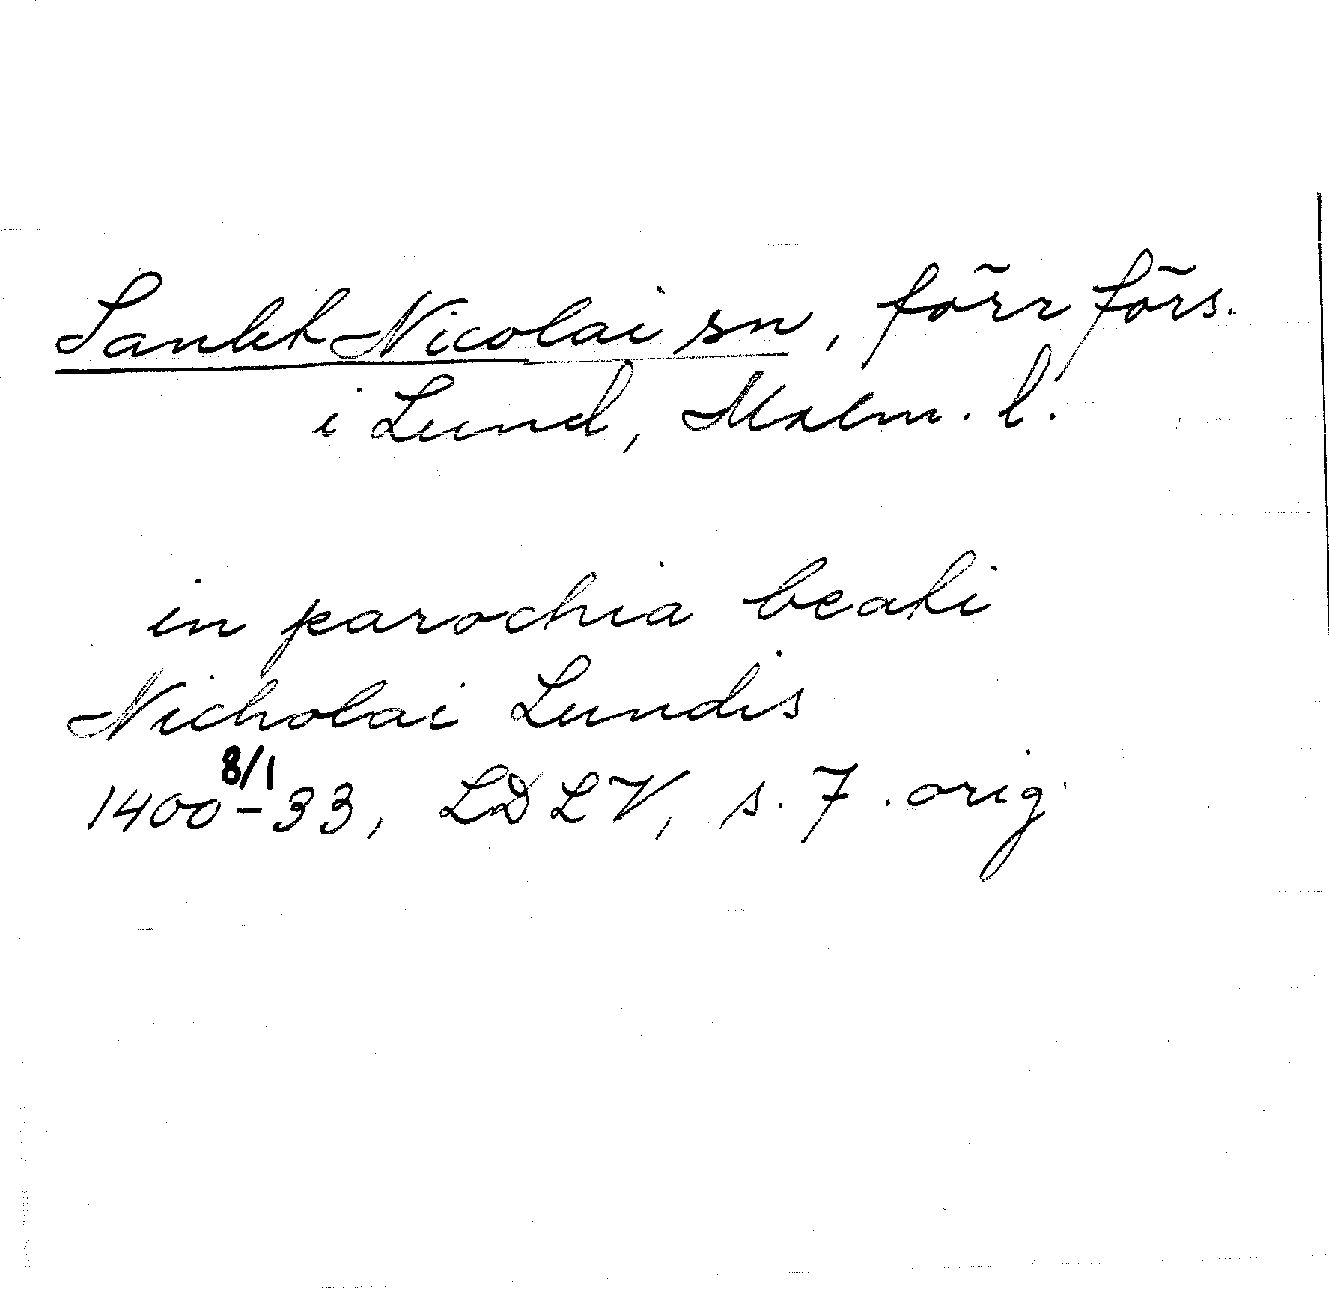 Sankt Nicolai sn, förr förs.
i Lund, Malm. l.
in parochia beati
Nicholai Lundis
1400 8/1 - 33, LDLV, s. 7. orig.